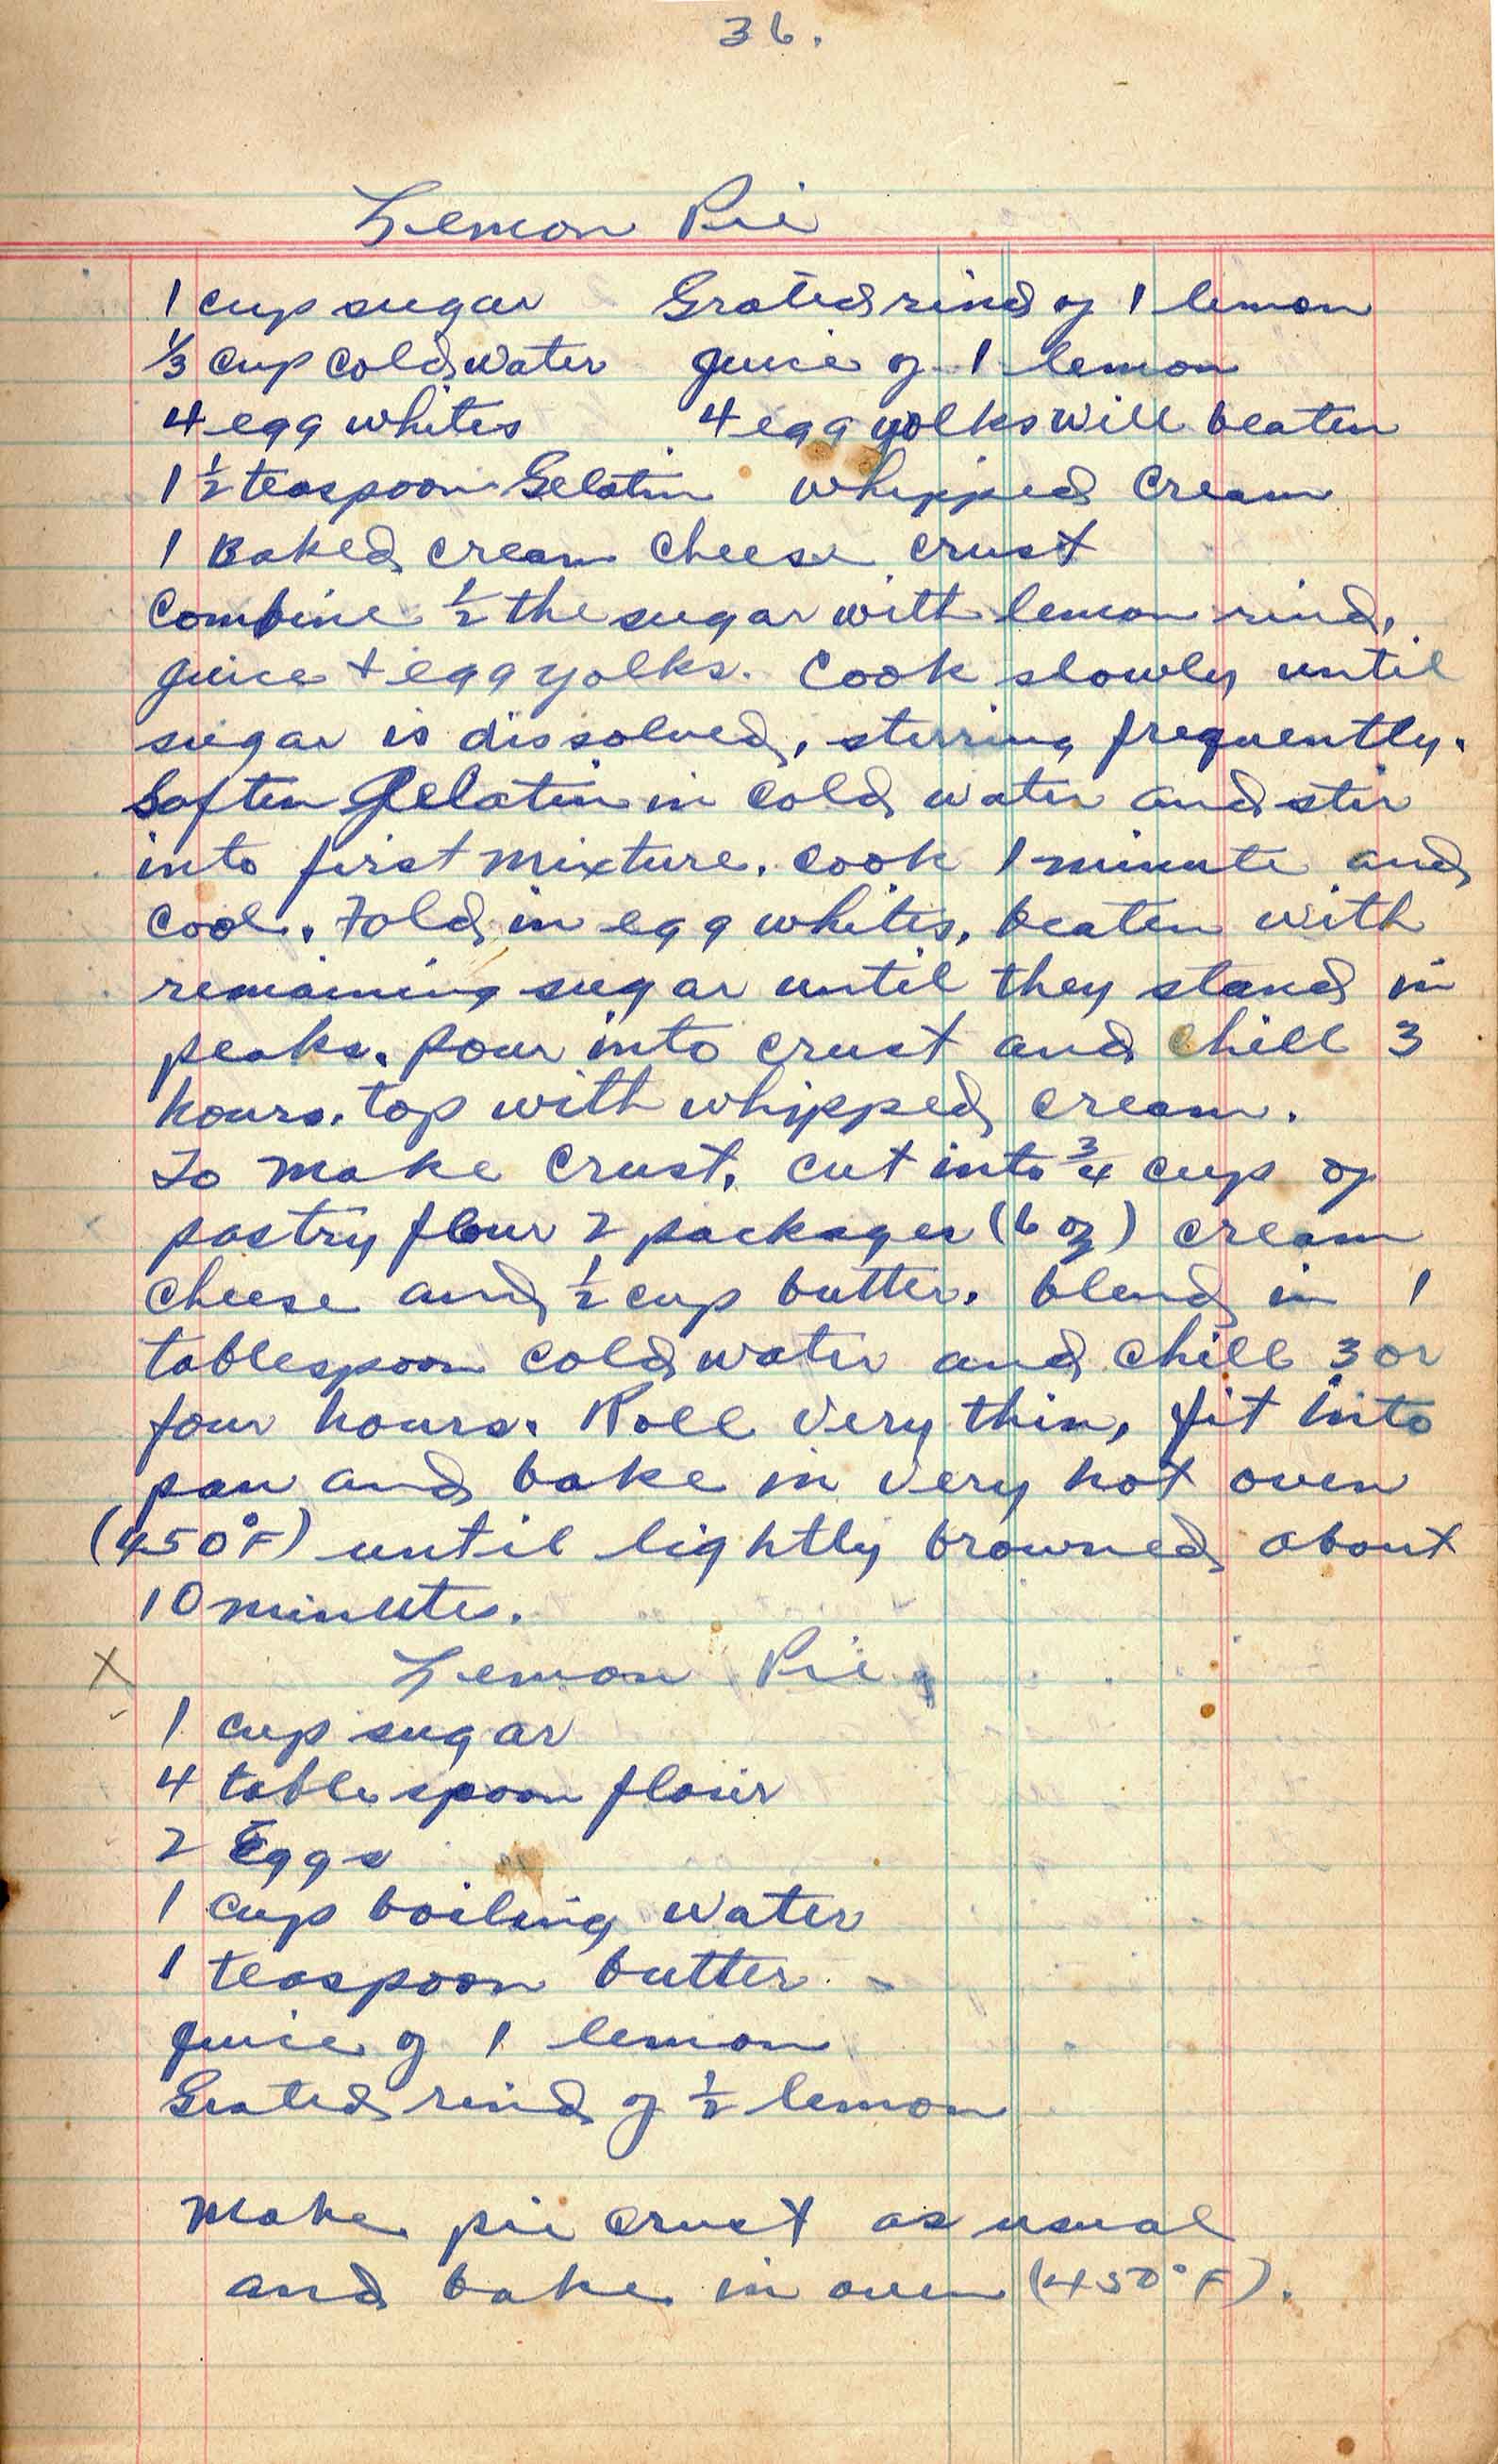 36.
Lemon Pie
1 cup sugar Grated rind of 1 lemon
1/3 cup cold water juice of 1 lemon
4 egg whites 4 egg yolks will beaten
1 1/2 teaspoon Gelatin whipped cream
1 Baked cream cheese crust
Combine 1/2 the sugar with lemon rind,
juice + egg yolks. Cook slowly until
sugar is dissolved, stirring frequently.
Soften Gelatin in cold water and stir
into first mixture. Cook 1 minute and
cool. Fold in egg whites, beaten with
remaining sugar until they stand in
peaks. pour into crust and chill 3
hours. top with whipped cream.
To make crust, cut into 3/4 cup of
pastry flour 2 packages (6 oz) cream
cheese and 1/2 cup butter. blend in 1
tablespoon cold water and chill 3 or
four hours. Roll very thin, fit into
pan and bake in very hot oven
(450°F) until lightly browned about
10 minutes.
X Lemon Pie
1 cup sugar
4 tablespoon flour
2 Eggs
1 cup boiling water
1 teaspoon butter
juice of 1 lemon
Grated rind of 1/2 lemon
Make pie crust as usual
and bake in oven (450°F).